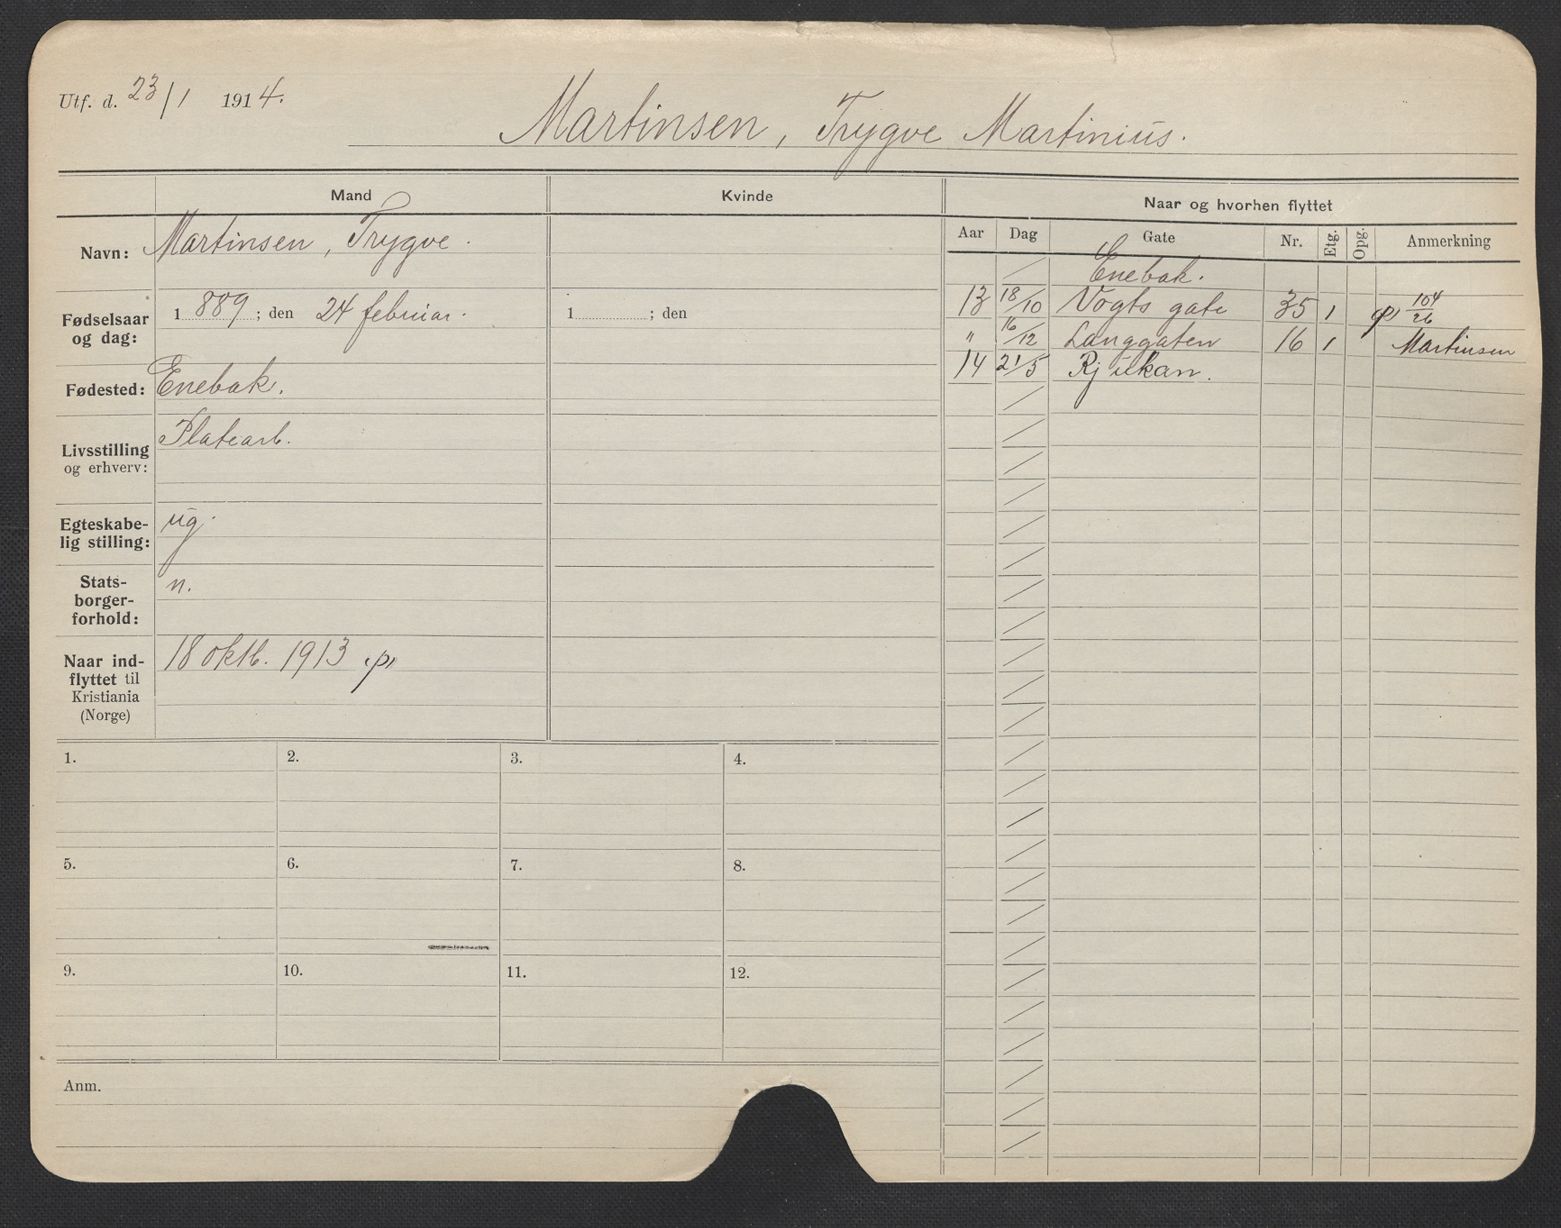 Utf. d. 23/1 1914.
Martinsen, Trygve Martinius.
Mand
Kvinde
Naar og hvorhen flyttet
Navn: Martinsen, Trygve.
Fødselsaar og dag: 1889; den 24 februar. 1 ; den
Fødested: Enebak.
Livsstilling og erhverv: Platearb.
Egteskabe-
lig stilling: ug.
Stats-
borger-
forhold: n.
Naar ind-
flyttet til
Kristiania
(Norge) 18 oktb. 1913 p
1. 2. 3. 4.
5. 6. 7. 8.
9. 10. 11. 12.
Anm.
Aar Dag Gate Nr. Etg. Opg. Anmerkning
/ Enebak.
13 18/10 Vogts gate 35 1 p 104/26
" 16/12 Langgaten 16 1 Martinsen
14 21/5 Rjukan.